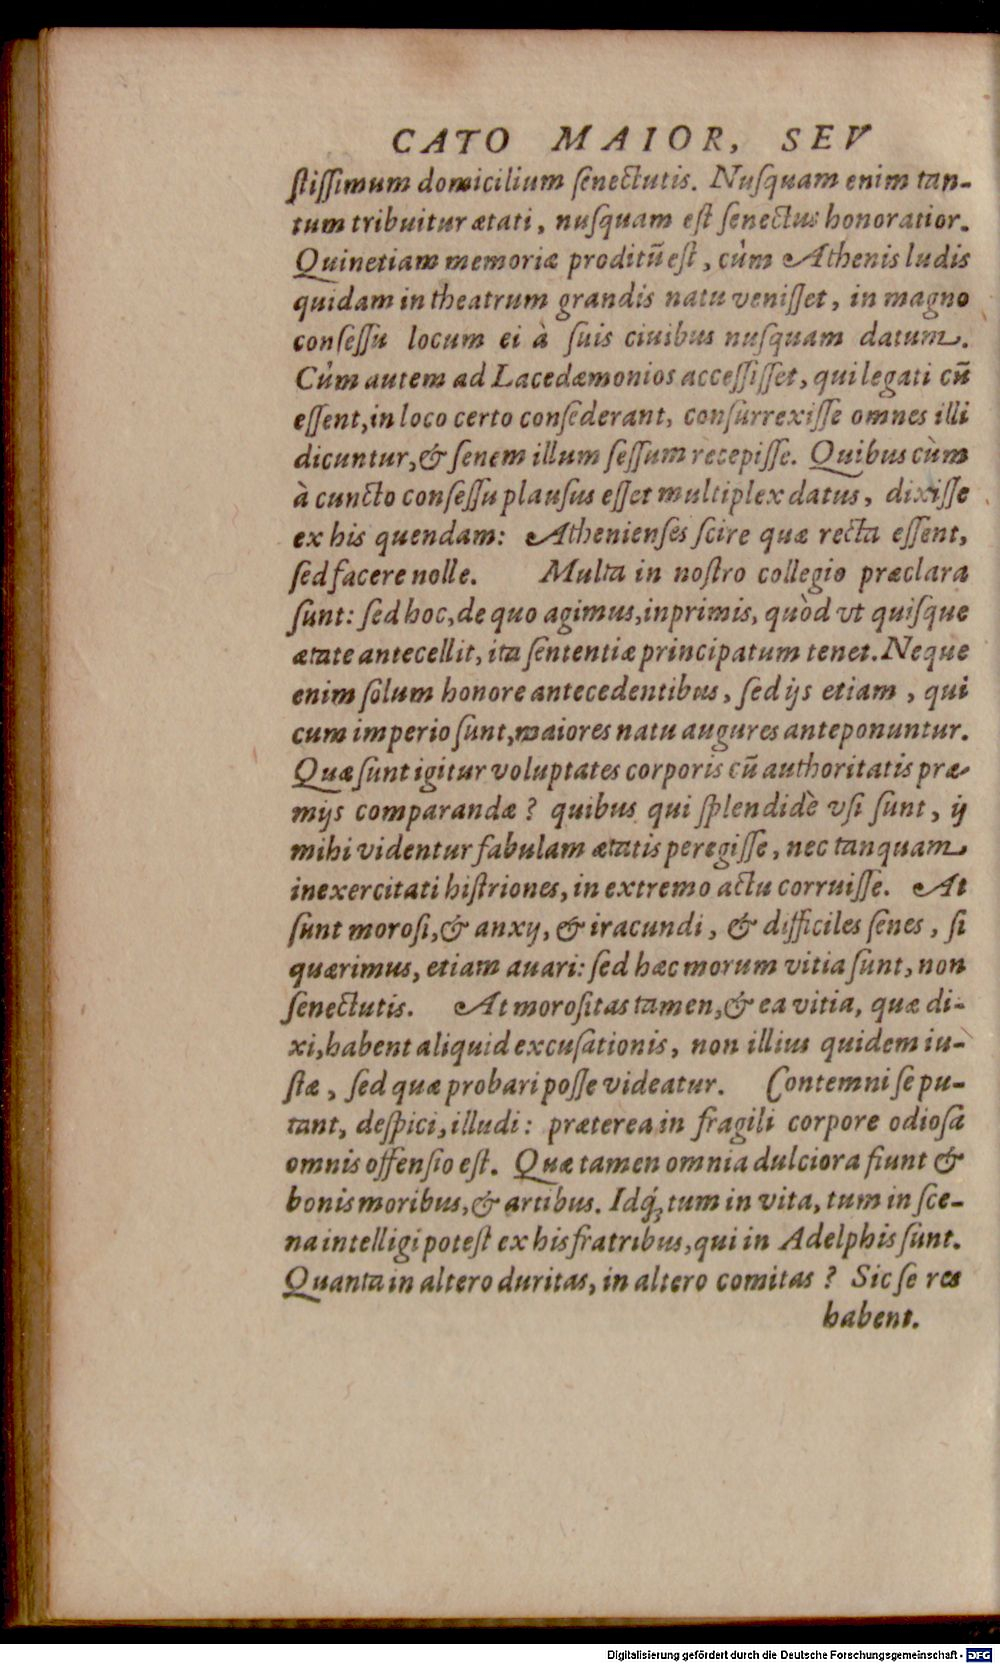 CATO MAIOR, SEV
ſtiſſimum domicilium ſenectutis. Nuſquam enim tan-
tum tribuitur ætati, nuſquam eſt ſenectus honoratior.
Quinetiam memoriæ proditũ eſt, cùm Athenis ludis
quidam in theatrum grandis natu veniſſet, in magno
conſeſſu locum ei à ſuis ciuibus nuſquam datum.
Cùm autem ad Lacedæmonios acceſſiſſet, qui legati cũ
eſſent, in loco certo conſederant, conſurrexiſſe omnes illi
dicuntur, & ſenem illum ſeſſum recepiſſe. Quibus cùm
à cuncto conſeſſu plauſus eſſet multiplex datus, dixiſſe
ex his quendam: Athenienſes ſcire quæ recta eſſent,
ſed facere nolle. Multa in noſtro collegio præclara
ſunt: ſed hoc, de quo agimus, inprimis, quòd vt quiſque
ætate antecellit, ita ſententiæ principatum tenet. Neque
enim ſolum honore antecedentibus, ſed ijs etiam, qui
cum imperio ſunt, maiores natu augures anteponuntur.
Quæ ſunt igitur voluptates corporis cũ authoritatis præ-
mijs comparandæ? quibus qui ſplendidè vſi ſunt, ij
mihi videntur fabulam ætatis peregiſſe, nec tanquam
inexercitati hiſtriones, in extremo actu corruiſſe. At
ſunt moroſi, & anxij, & iracundi, & difficiles ſenes, ſi
quærimus, etiam auari: ſed hæc morum vitia ſunt, non
ſenectutis. At moroſitas tamen, & ea vitia, quæ di-
xi, habent aliquid excuſationis, non illius quidem iu-
ſtæ, ſed quæ probari poſſe videatur. Contemni ſe pu-
tant, deſpici, illudi: præterea in fragili corpore odioſa
omnis offenſio eſt. Quæ tamen omnia dulciora fiunt &
bonis moribus, & artibus. Idq́; tum in vita, tum in ſce-
na intelligi poteſt ex his fratribus, qui in Adelphis ſunt.
Quanta in altero duritas, in altero comitas? Sic ſe res
habent.
Digitalisierung gefördert durch die Deutsche Forschungsgemeinschaft - DFG